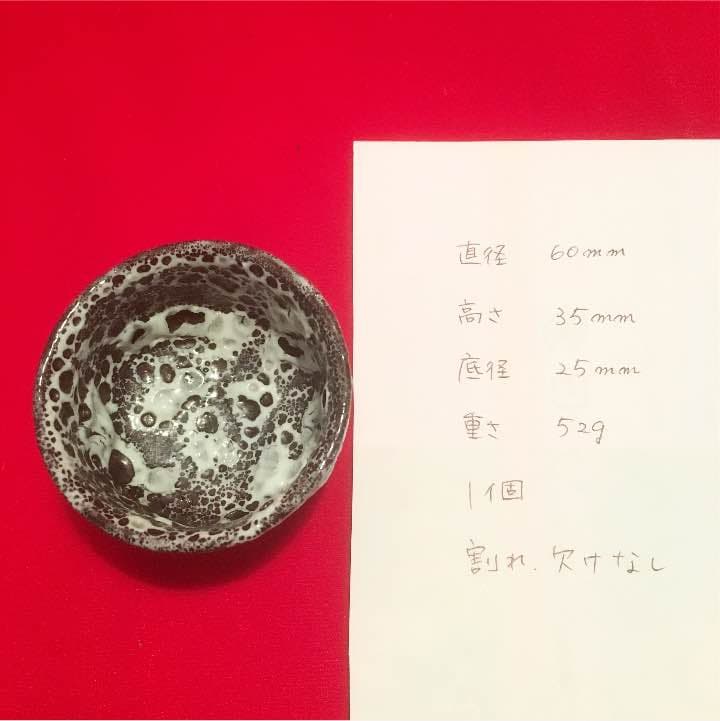 直径 60mm
高さ 35mm
底径 25mm
重さ 52g
1個
割れ.欠けなし